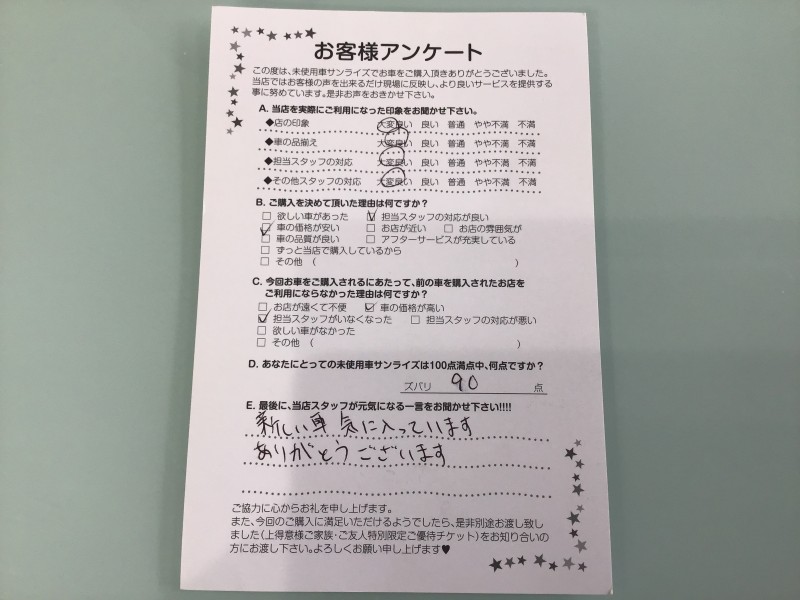 お客様アンケート
この度は、未使用車サンライズでお車をご購入頂きありがとうございました。
当店ではお客様の声を出来るだけ現場に反映し、より良いサービスを提供する
事に努めています。是非お声をおきかせ下さい。
A. 当店を実際にご利用になった印象をお聞かせ下さい。
◆店の印象 大変良い 良い 普通 やや不満 不満
◆車の品揃え 大変良い 良い 普通 やや不満 不満
◆担当スタッフの対応 大変良い 良い 普通 やや不満 不満
◆その他スタッフの対応 大変良い 良い 普通 やや不満 不満
B. ご購入を決めて頂いた理由は何ですか?
□ 欲しい車があった ☑ 担当スタッフの対応が良い
☑ 車の価格が安い □ お店が近い □ お店の雰囲気が
□ 車の品質が良い □ アフターサービスが充実している
□ ずっと当店で購入しているから
□ その他 ( )
C. 今回お車をご購入されるにあたって、前の車を購入されたお店を
ご利用にならなかった理由は何ですか?
□ お店が遠くて不便 ☑ 車の価格が高い
☑ 担当スタッフがいなくなった □ 担当スタッフの対応が悪い
□ 欲しい車がなかった
□ その他 ( )
D. あなたにとっての未使用車サンライズは100点満点中、何点ですか?
ズバリ 90 点
E. 最後に、当店スタッフが元気になる一言をお聞かせ下さい!!!!
新しい車 気に入っています
ありがとうございます
ご協力に心からお礼を申し上げます。
また、今回のご購入に満足いただけるようでしたら、是非別途お渡し致し
ました(上得意様ご家族・ご友人特別限定ご優待チケット)をお知り合いの
方にお渡し下さい。よろしくお願い申し上げます♥